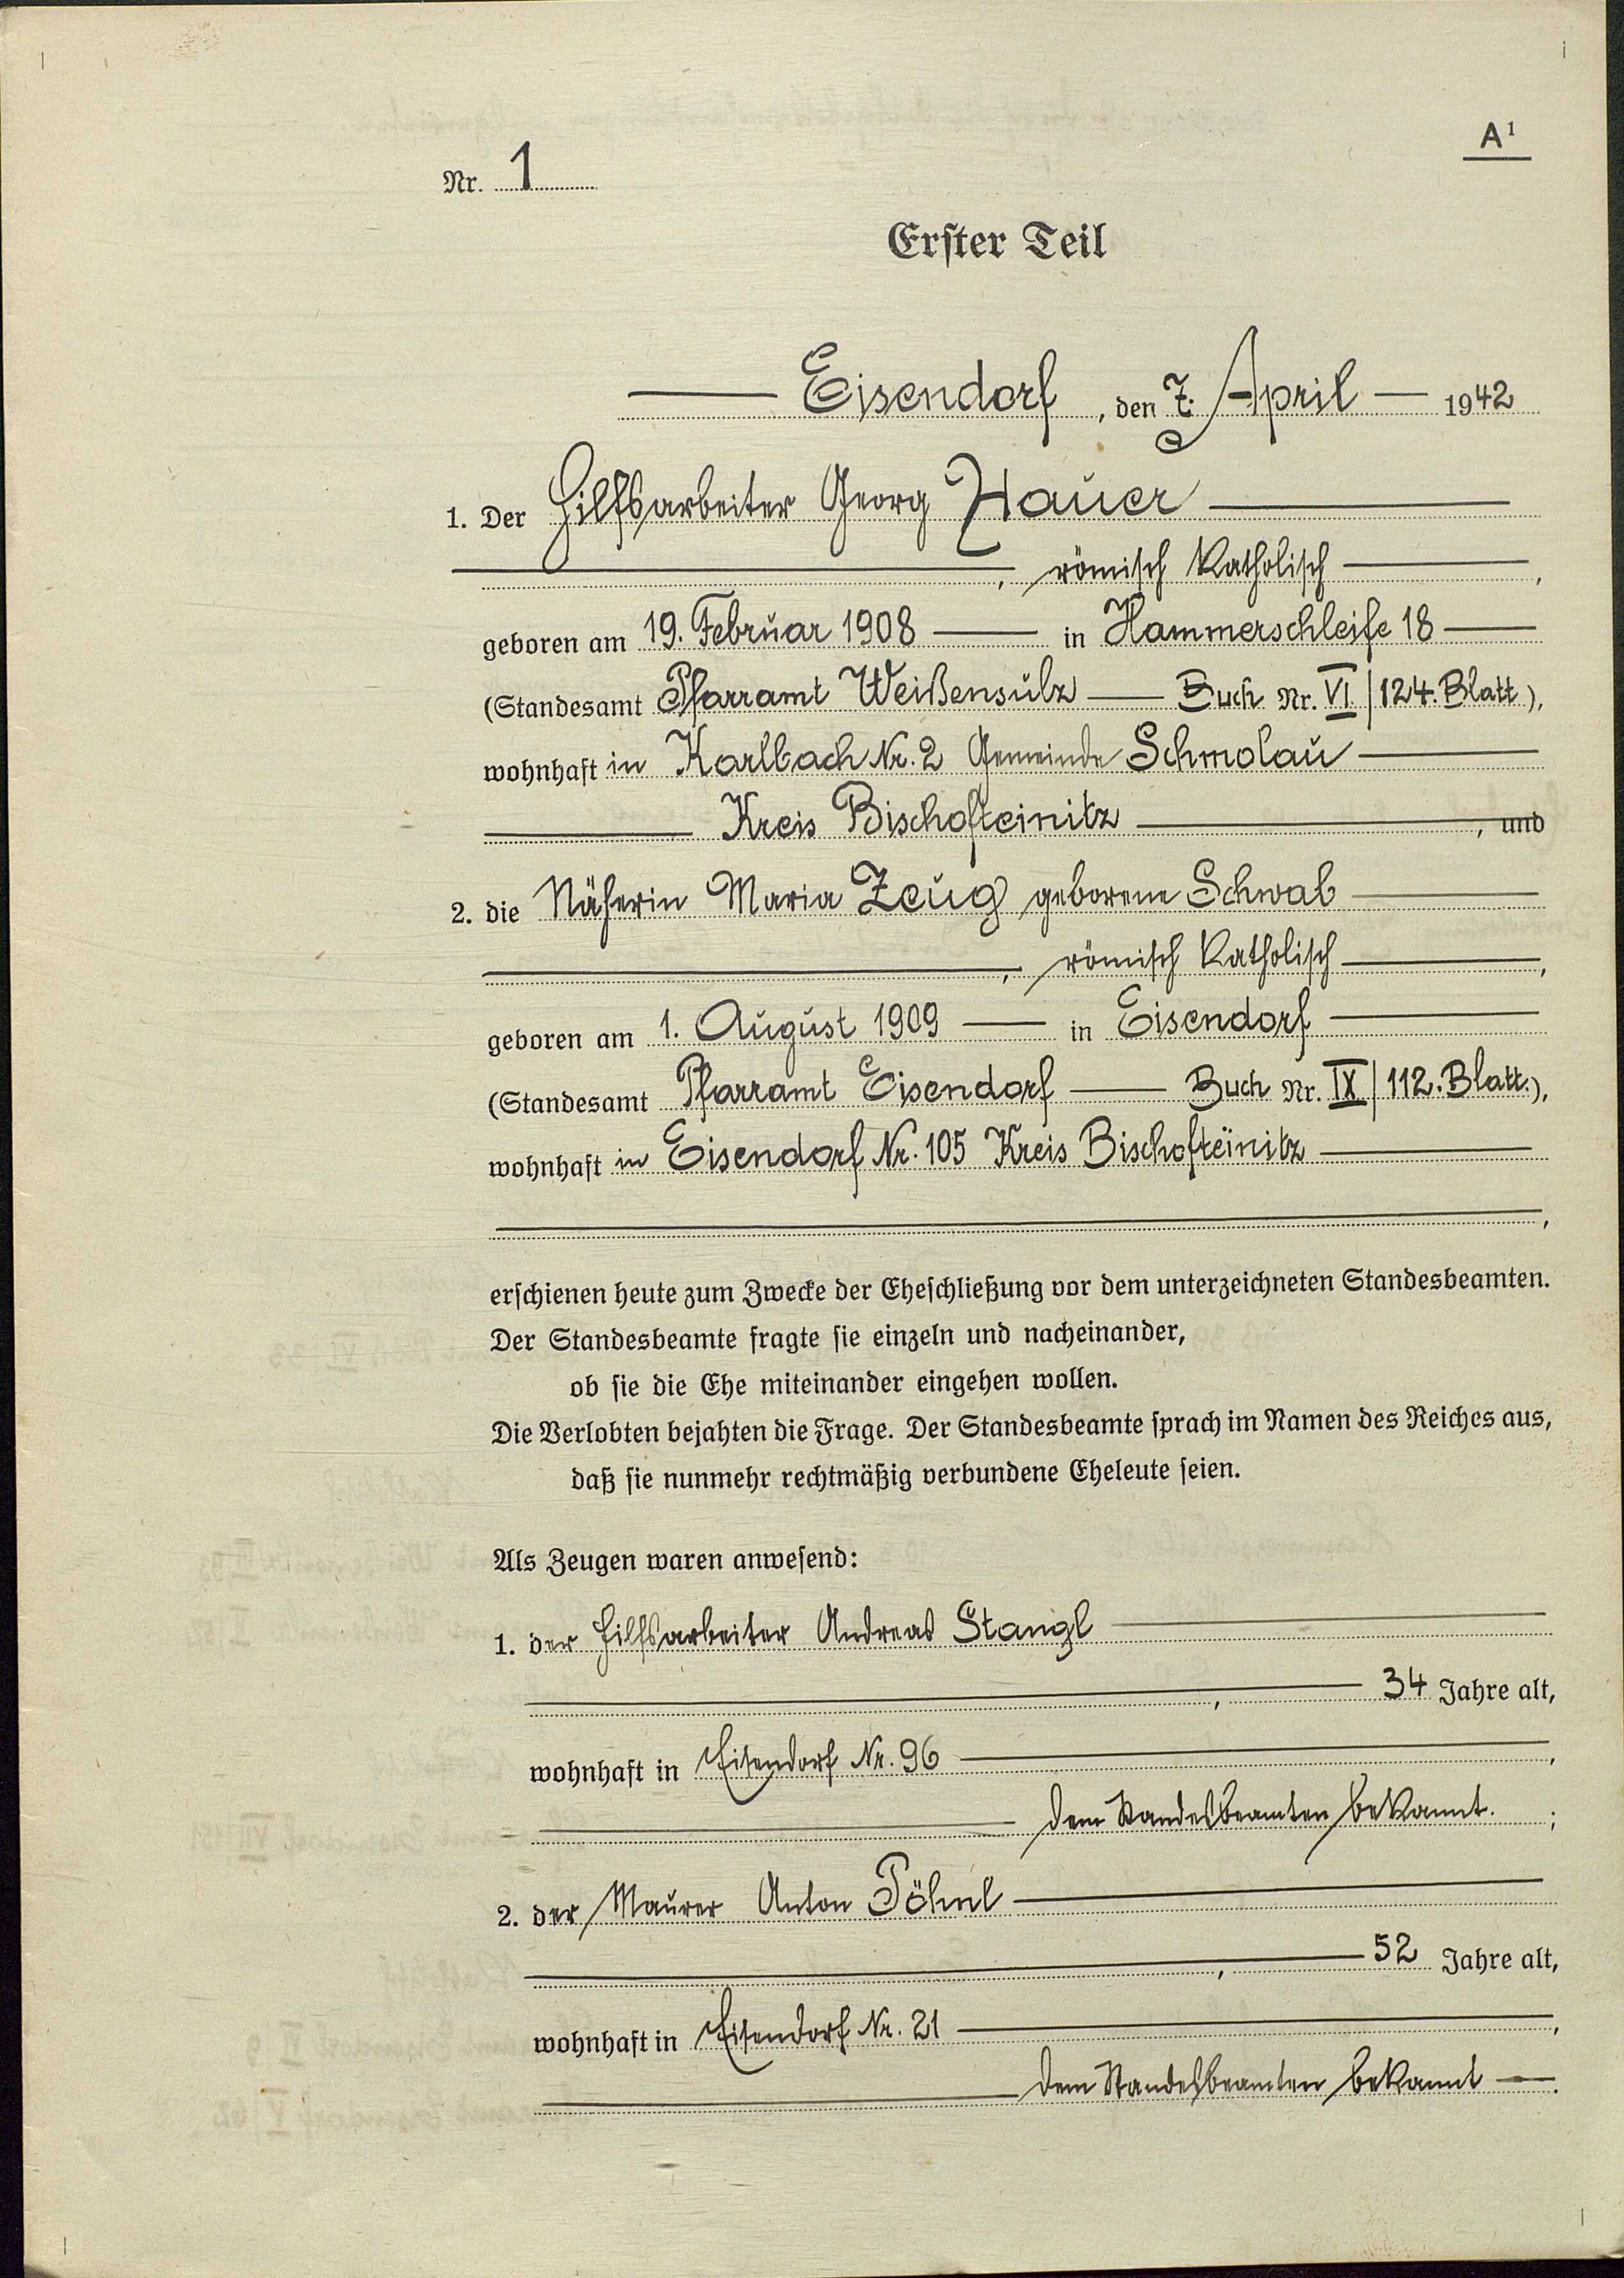 A¹
Nr. 1
Erster Teil
Eisendorf, den 7. April 1942
1. Der Hilfsarbeiter Georg Hauer
, römisch katholisch,
geboren am 19. Februar 1908 in Hammerschleife 18
(Standesamt Pfarramt Weißensulz Buch Nr. VI/124. Blatt),
wohnhaft in Karlbach Nr. 2 Gemeinde Schmolau
Kreis Bischofteinitz, und
2. die Näherin Maria Zeug geborene Schwab
, römisch katholisch,
geboren am 1. August 1909 in Eisendorf
(Standesamt Pfarramt Eisendorf Buch Nr. IX/112. Blatt.),
wohnhaft in Eisendorf Nr. 105 Kreis Bischofteinitz
,
erschienen heute zum Zwecke der Eheschließung vor dem unterzeichneten Standesbeamten.
Der Standesbeamte fragte sie einzeln und nacheinander,
ob sie die Ehe miteinander eingehen wollen.
Die Verlobten bejahten die Frage. Der Standesbeamte sprach im Namen des Reiches aus,
daß sie nunmehr rechtmäßig verbundene Eheleute seien.
Als Zeugen waren anwesend:
1. der Hilfsarbeiter Andreas Stangl
, 34 Jahre alt,
wohnhaft in Eisendorf Nr. 96,
dem Standesbeamten bekannt. ;
2. der Maurer Anton Pöhnl
, 52 Jahre alt,
wohnhaft in Eisendorf Nr. 21,
dem Standesbeamten bekannt.